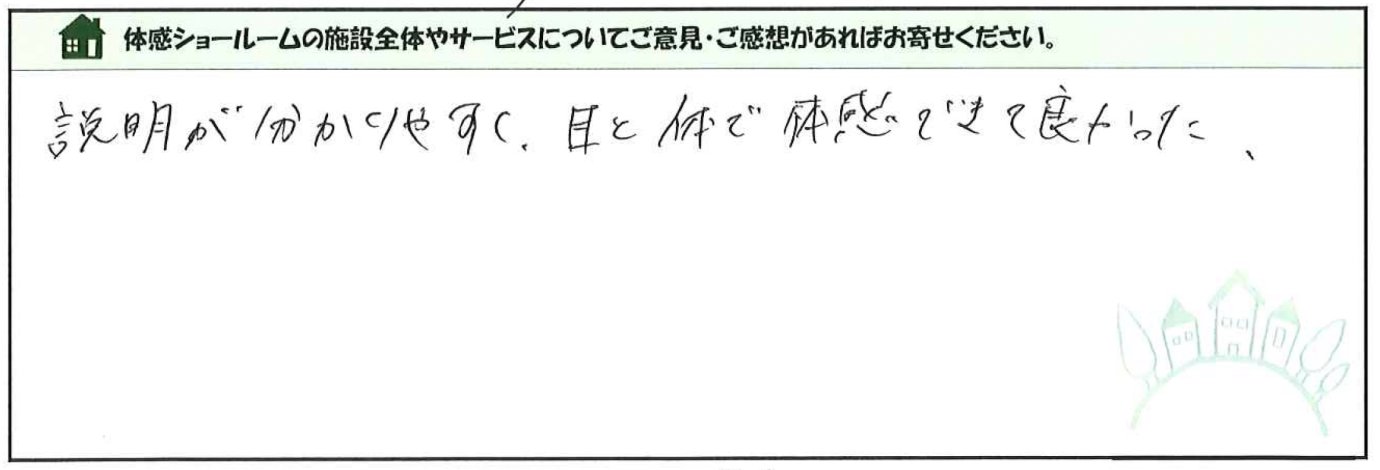 体感ショールームの施設全体やサービスについてご意見・ご感想があればお寄せください。
説明が分かりやすく、目と体で体感できて良かった、